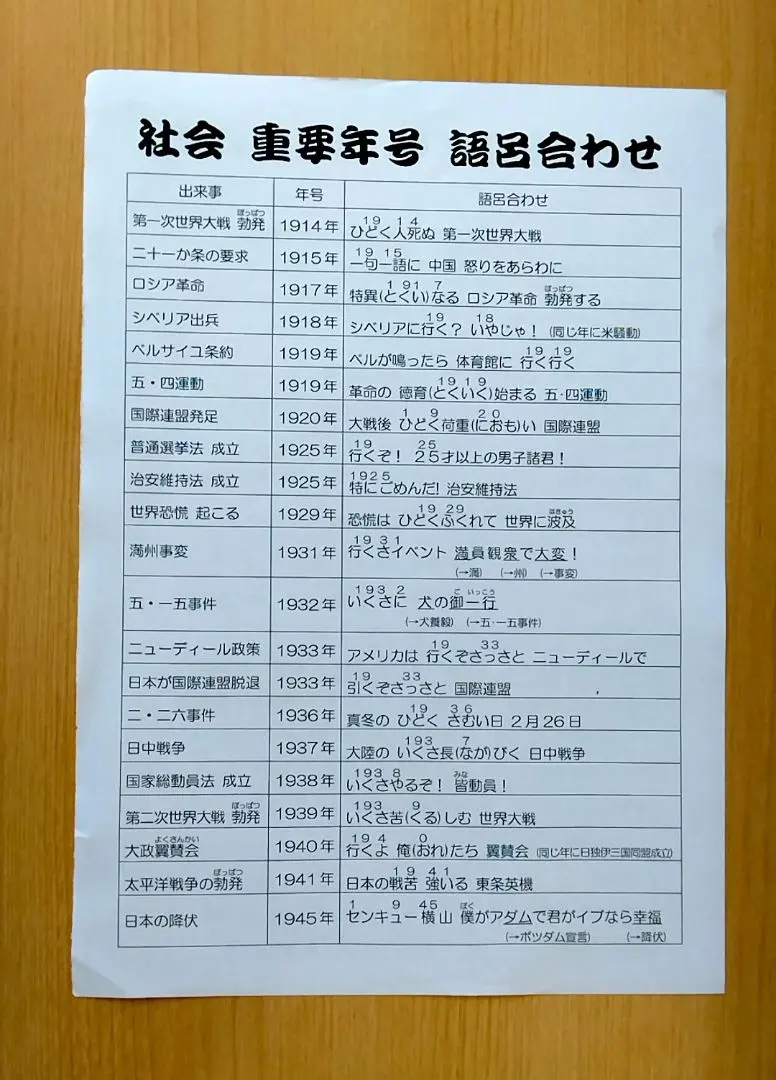 社会 重要年号 語呂合わせ
出来事 年号 語呂合わせ
ぼっぱつ 19 14
第一次世界大戦 勃発 1914年 ひどく人死ぬ 第一次世界大戦
19 15
二十一か条の要求 1915年 一句一語に 中国 怒りをあらわに
1 91 7 ぼっぱつ
ロシア革命 1917年 特異(とくい)なる ロシア革命 勃発する
19 18
シベリア出兵 1918年 シベリアに行く? いやじゃ! (同じ年に米騒動)
19 19
ベルサイユ条約 1919年 ベルが鳴ったら 体育館に 行く行く
19 19
五・四運動 1919年 革命の 徳育(とくいく)始まる 五・四運動
1 9 20
国際連盟発足 1920年 大戦後 ひどく荷重(におも)い 国際連盟
19 25
普通選挙法 成立 1925年 行くぞ! 25才以上の男子諸君!
1925
治安維持法 成立 1925年 特にごめんだ! 治安維持法
19 29 はきゅう
世界恐慌 起こる 1929年 恐慌は ひどくふくれて 世界に波及
19 31
満州事変 1931年 行くさイベント 満員観衆で大変!
(→満) (→州) (→事変)
193 2 ご いっこう
五・一五事件 1932年 いくさに 犬の御一行
(→犬養毅) (→五・一五事件)
19 33
ニューディール政策 1933年 アメリカは 行くぞさっさと ニューディールで
19 33
日本が国際連盟脱退 1933年 引くぞさっさと 国際連盟
19 36
二・二六事件 1936年 真冬の ひどく さむい日 2月26日
193 7
日中戦争 1937年 大陸の いくさ長(なが)びく 日中戦争
193 8 みな
国家総動員法 成立 1938年 いくさやるぞ! 皆動員!
ぼっぱつ 193 9
第二次世界大戦 勃発 1939年 いくさ苦(くる)しむ 世界大戦
よくさんかい 19 4 0
大政翼賛会 1940年 行くよ 俺(おれ)たち 翼賛会 (同じ年に日独伊三国同盟成立)
ぼっぱつ 19 41
太平洋戦争の勃発 1941年 日本の戦苦 強いる 東条英機
1 9 45 ぼく
日本の降伏 1945年 センキュー横山 僕がアダムで君がイブなら幸福
(→ポツダム宣言) (→降伏)